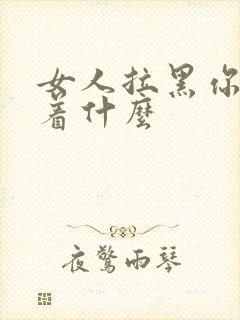 女人拉黑你
着什麼
夜驚雨琴